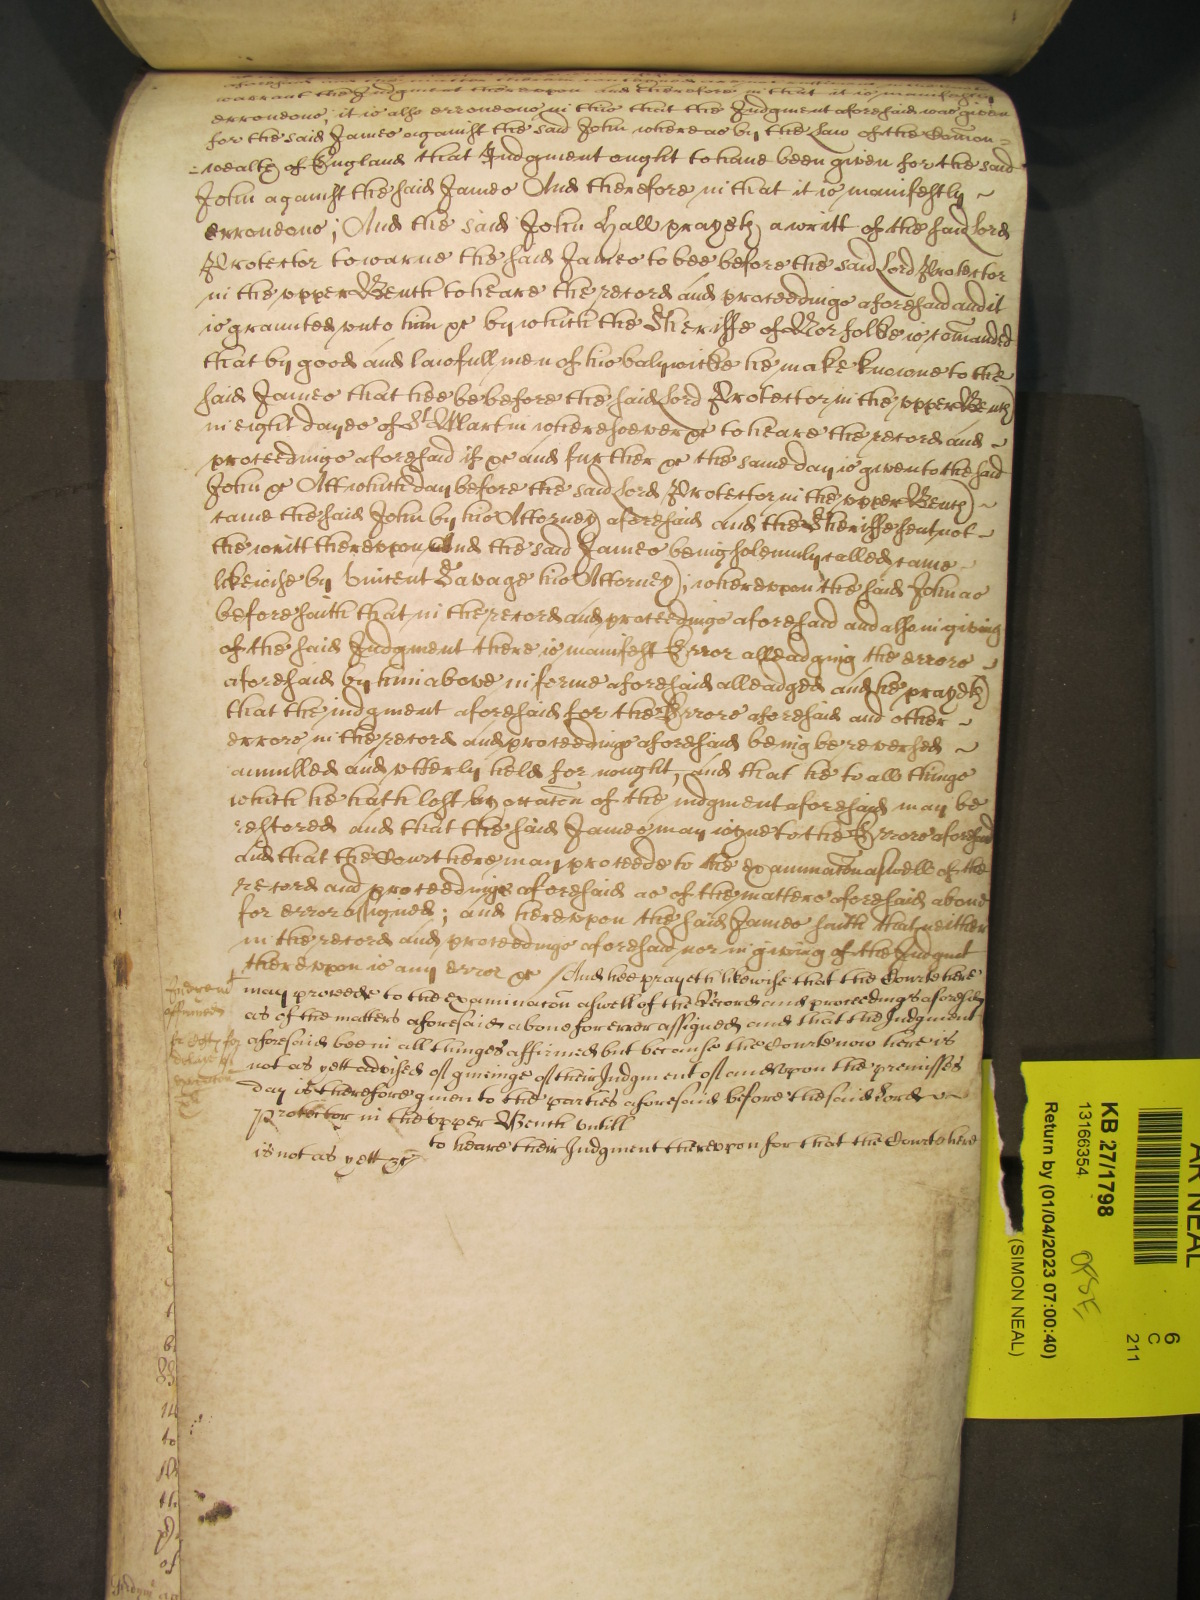 warrant the Judgment thereupon and therefore in that it is manifestly
erroneous, it is also erroneous in this that the Judgment aforesaid was given
for the said James against the said John whereas by the Law of the Comon=
=wealth of England that Judgment ought to have been given for the said
John against the said James And therefore in that it is manifestly ~
erroneous; And the said John Hall prayeth a writt of the said Lord
Protector to warne the said James to bee before the said Lord Protector
in the upper Bench to heare the record and proceedings aforesaid and it
is graunted unto him &c by which the Sheriffe of Norfolke is comanded
that by good and lawfull men of his balywicke he make knowne to the
said James that hee be before the said Lord Protector in the upper Bench
in eight dayes of St Martin wheresoever &c to heare the record and ~
proceedings aforesaid if &c and further &c the same day is given to the said
John &c Att which day before the said Lord Protector in the upper Bench ~
came the said John by his Attorney aforesaid and the Sheriffe sent not ~
the writt thereupon And the said James being solemnly called came ~
likewise by Vincent Savage his Attorney; whereupon the said John as
before saith that in the record and proceedings aforesaid and also in giving
of the said Judgment there is manifest Error alleadging the errors ~
aforesaid by him above in forme aforesaid alleadged and he prayeth
that the judgment aforesaid for the Errors aforesaid and other ~
errors in the record and proceedings aforesaid being be reversed ~
annulled and utterly held for nought, and that he to all things
which he hath lost by occacon of the judgment aforesaid may be
restored and that the said James may joyne to the Errors aforesaid
and that the Court here may proceede to the examinacon aswell of the
record and proceedings aforesaid as of the matters aforesaid above
for error assigned; and hereupon the said James saith that neither
in the record and proceedings aforesaid nor in giving of the Judgmt
thereupon is any error &c / And hee prayeth likewise that the Courte here
may proceede to the examinacon aswell of the Record and proceedings aforesaid
as of the matters aforesaid above for error assigned and that the Judgment
aforesaid bee in all thinges affirmed but because the Courte now here is
not as yett advised of giveinge of their Judgment of and upon the premisses
day is therefore given to the parties aforesaid before the said Lord
Protector in the upper Bench untill
to heare their Judgment thereupon for that the Courte here
is not as yett &c
Judgmt
affirmed
KB 27/1798
13166354
Return by (01/04/2023 07:00:40)
(SIMON NEAL)
6
C
211